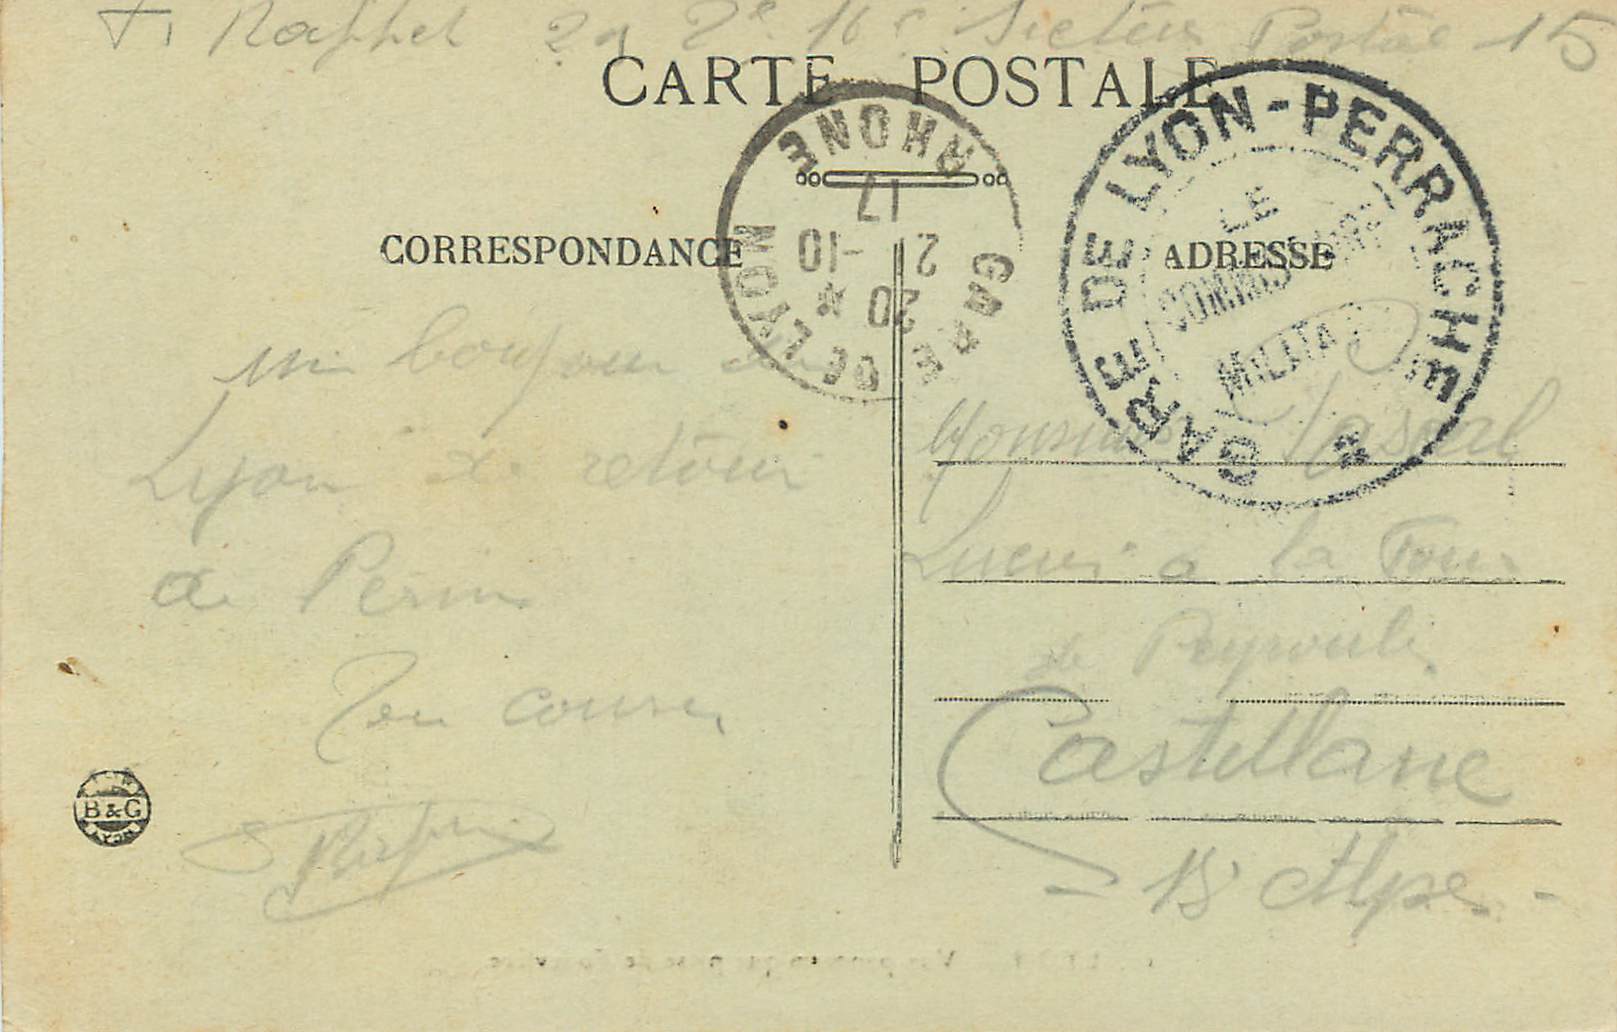 Raphel 2e Secteur Postal 15
CARTE POSTALE
RHONE
GARE DE LYON
20 *
2 -10
17
GARE DE LYON-PERRACHE *
LE
COMMISSAIRE
MILITAIRE
CORRESPONDANCE
ADRESSE
un bonjour de
Lyon de retour
de Perm
Ton cousin
Monsieur Pascal
Lucien a la Foux
de Peyroules
Castellane
Bs Alpes
LYON
B & G
LYON